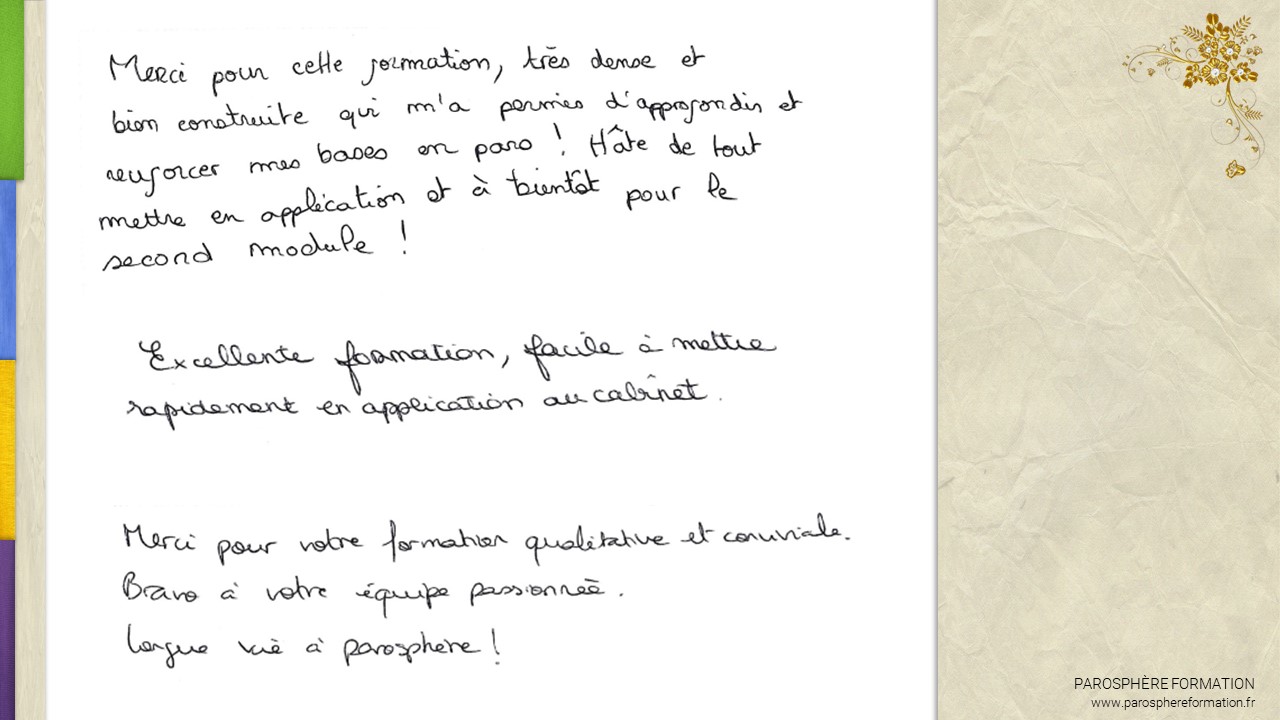 Merci pour cette formation, très dense et
bien construite qui m'a permies d'approfondir et
renforcer mes bases en paro ! Hâte de tout
mettre en application et à bientôt pour le
second module !
Excellente formation, facile à mettre
rapidement en application au cabinet.
Merci pour votre formation qualitative et conviviale.
Bravo à votre équipe passionnée.
Longue vie à parosphère !
PAROSPHÈRE FORMATION
www.parosphereformation.fr